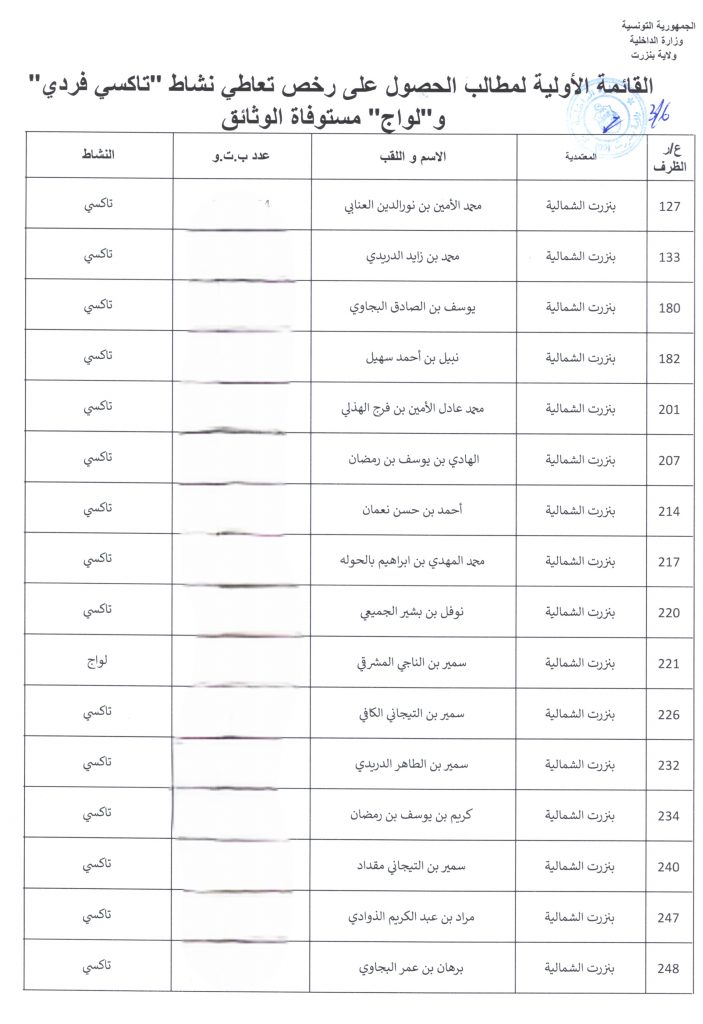 الجمهورية التونسية
وزارة الداخلية
ولاية بنزرت
القائمة الأولية لمطالب الحصول على رخص تعاطي نشاط "تاكسي فردي"
و"لواج" مستوفاة الوثائق
3/6
ع/ر الظرف المعتمدية الاسم و اللقب عدد ب.ت.و النشاط
127 بنزرت الشمالية محمد الأمين بن نورالدين العنابي تاكسي
133 بنزرت الشمالية محمد بن زايد الدريدي تاكسي
180 بنزرت الشمالية يوسف بن الصادق البجاوي تاكسي
182 بنزرت الشمالية نبيل بن أحمد سهيل تاكسي
201 بنزرت الشمالية محمد عادل الأمين بن فرج الهذلي تاكسي
207 بنزرت الشمالية الهادي بن يوسف بن رمضان تاكسي
214 بنزرت الشمالية أحمد بن حسن نعمان تاكسي
217 بنزرت الشمالية محمد المهدي بن ابراهيم بالحوله تاكسي
220 بنزرت الشمالية نوفل بن بشير الجميعي تاكسي
221 بنزرت الشمالية سمير بن الناجي المشرقي لواج
226 بنزرت الشمالية سمير بن التيجاني الكافي تاكسي
232 بنزرت الشمالية سمير بن الطاهر الدريدي تاكسي
234 بنزرت الشمالية كريم بن يوسف بن رمضان تاكسي
240 بنزرت الشمالية سمير بن التيجاني مقداد تاكسي
247 بنزرت الشمالية مراد بن عبد الكريم الذوادي تاكسي
248 بنزرت الشمالية برهان بن عمر البجاوي تاكسي